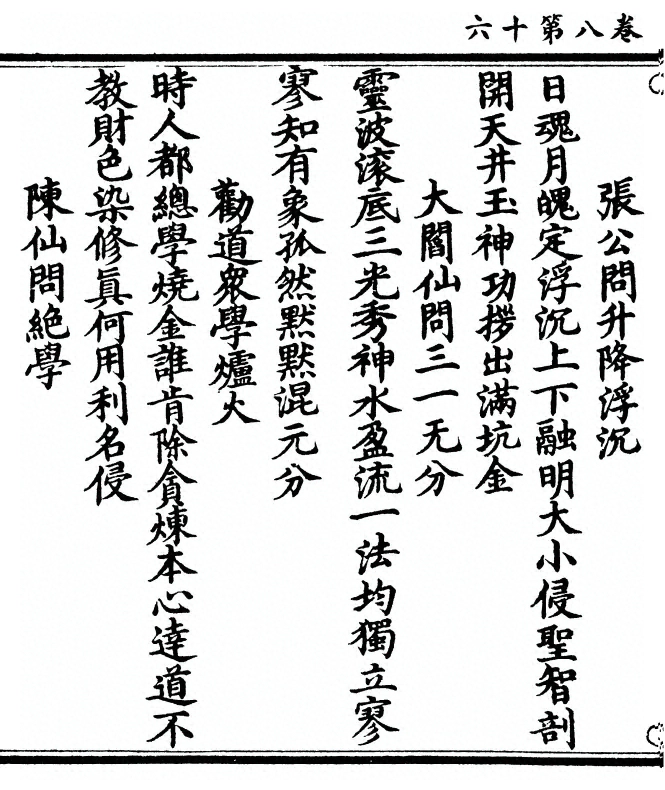 卷八第十六
張公問升降浮沉
日魂月魄定浮沉上下融明大小侵聖智剖
開天井玉神功撈出滿坑金
大闍仙問三一无分
靈波滾底三光秀神水盈流一法均獨立寥
寥知有象孤然默默混元分
勸道衆學爐火
時人都總學燒金誰肯除貪煉本心達道不
教財色染修眞何用利名侵
陳仙問絶學